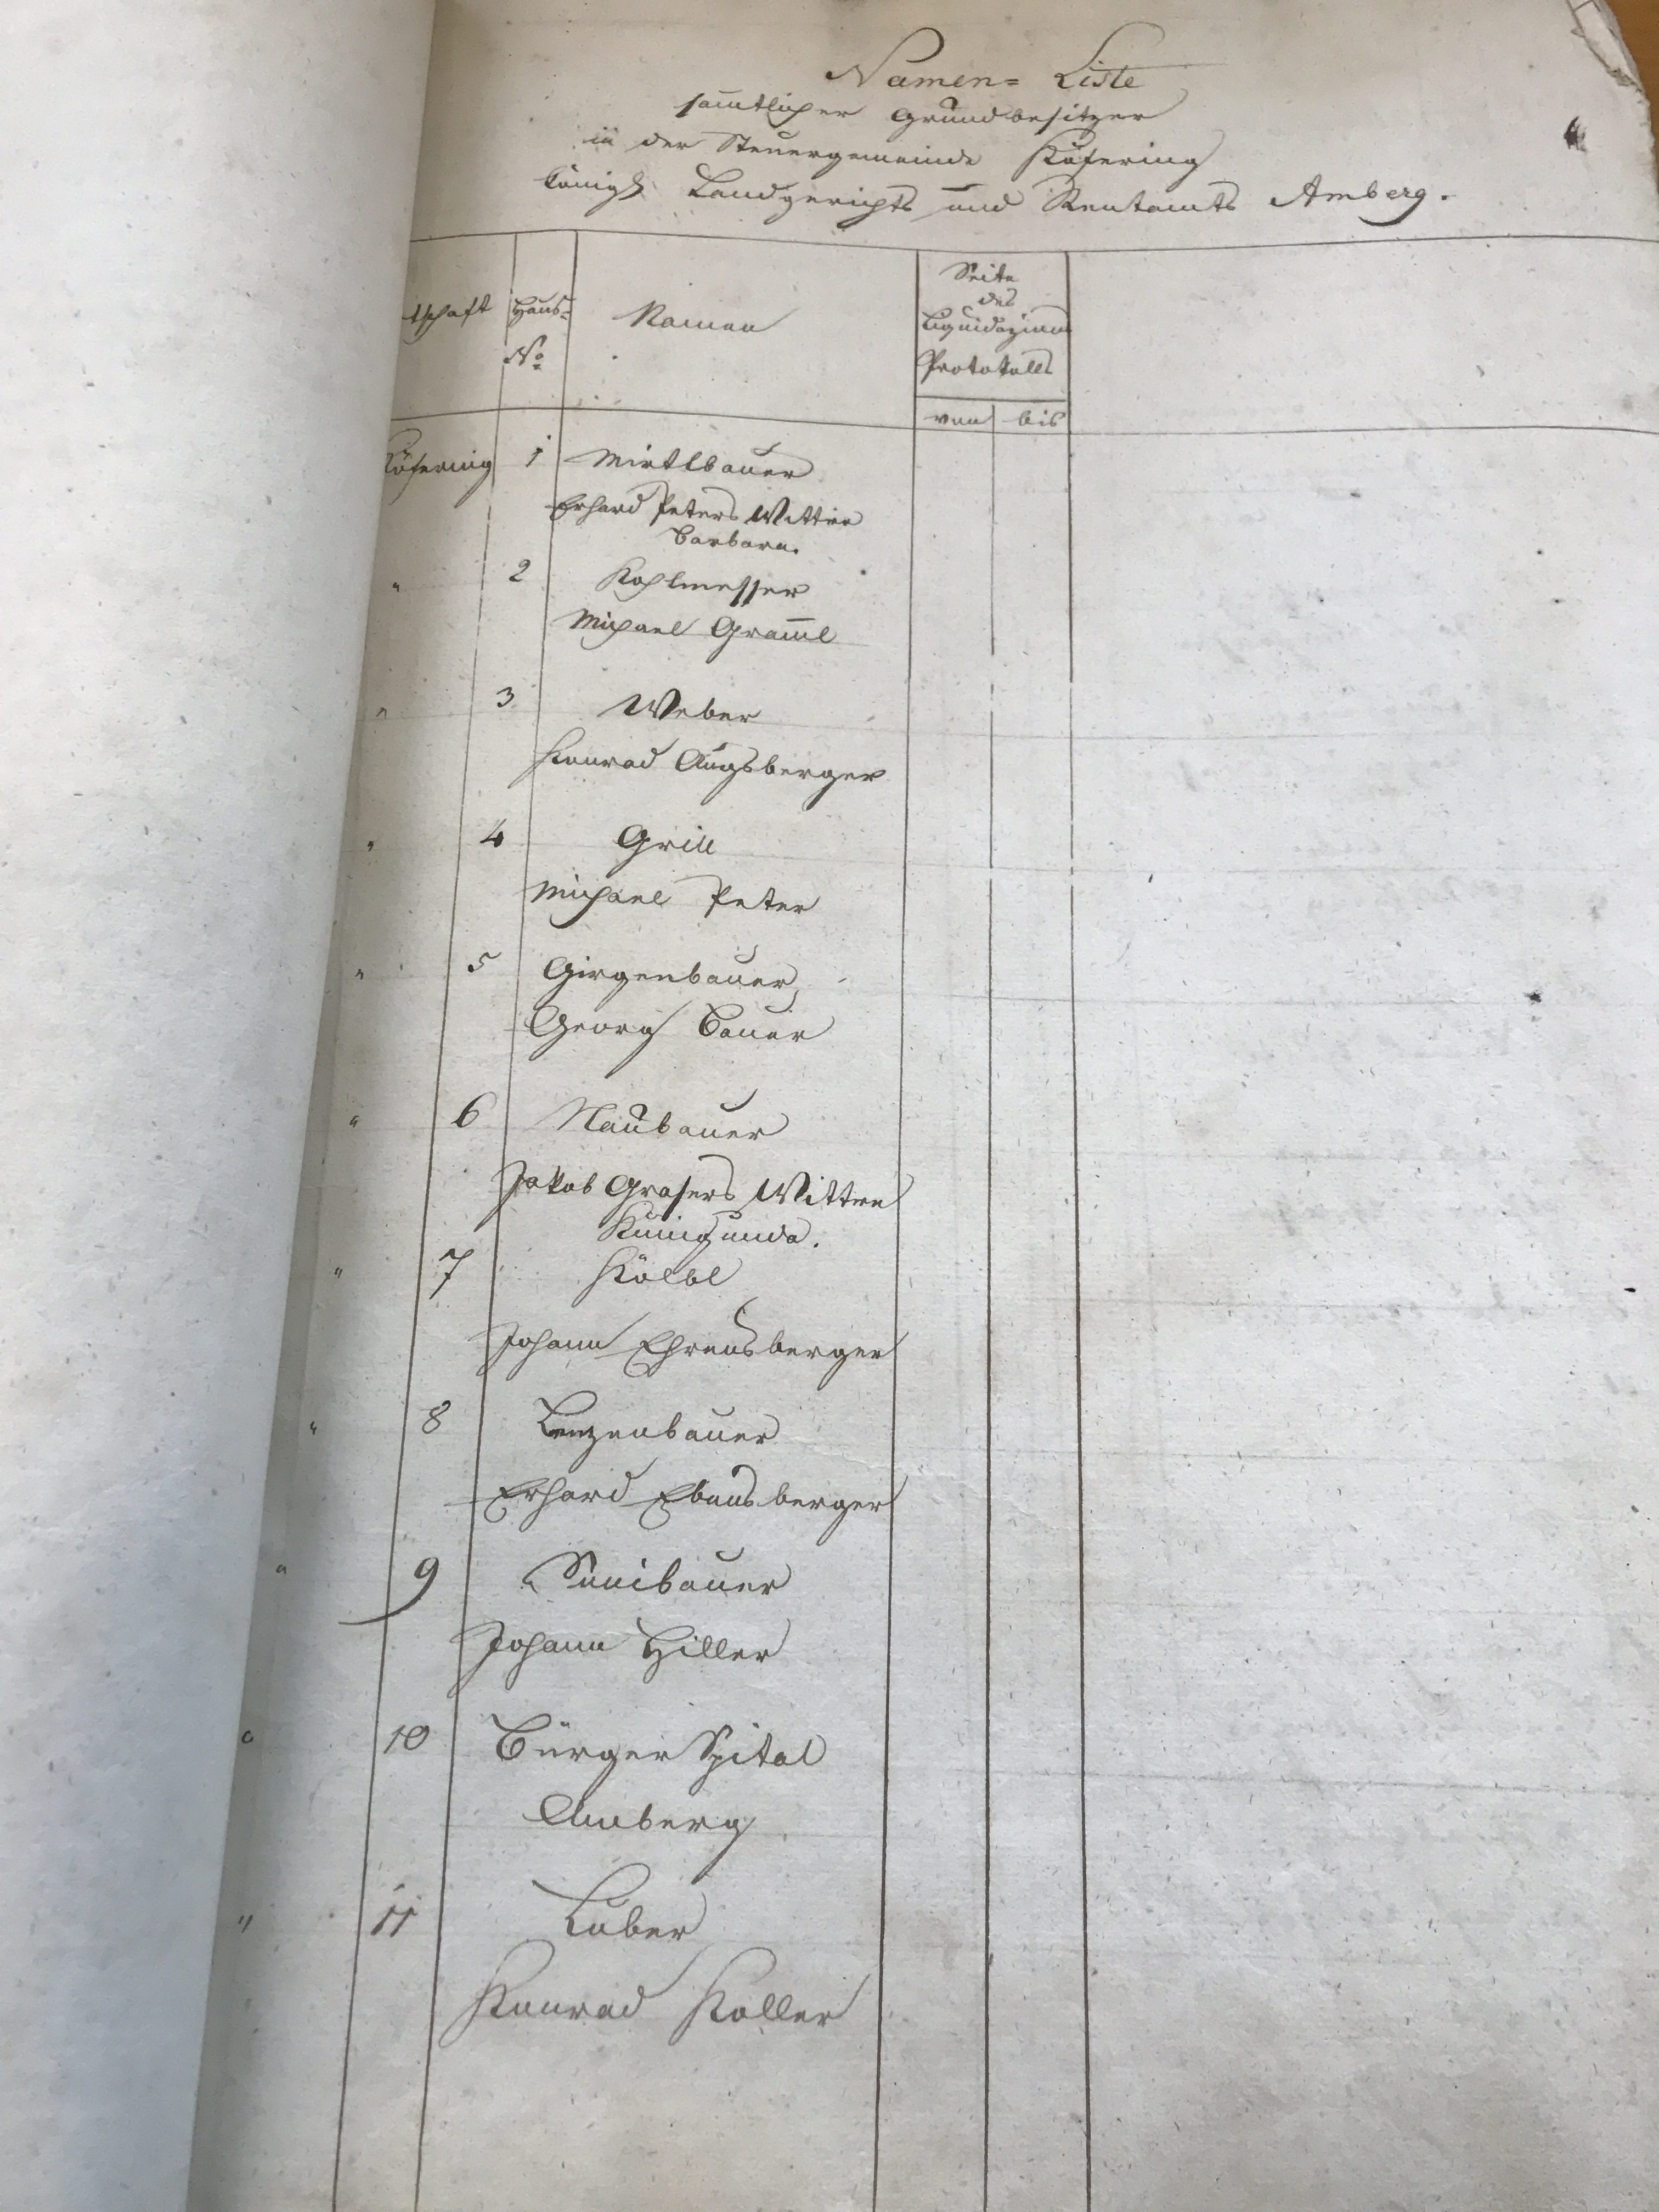 Namen= Liste
sam̄tlicher Grundbesitzer
in der Steuergemeinde Köfering
königl. Landgerichts und Rentamts Amberg.
tschaft
Haus=
No
Namen
Seite
des
Liquidazions
Protokolls
von bis
Köfering 1 Mirtlbauer
Erhard Peters Wittwe
Barbara.
" 2 Kohlmesser
Michael Gram̄l
" 3 Weber
Konrad Augsberger
" 4 Grill
Michael Peter
" 5 Girgenbauer,
Georg Bauer
" 6 Naubauer
Jakob Grasers Wittwe
Kunigunda.
" 7 Kölbl
Johann Ehrensberger
" 8 Lenzenbauer
Erhard Ebensberger
" 9
Johann Hiller
" 10 Bürger Spital
Amberg
" 11 Luber
Konrad Koller